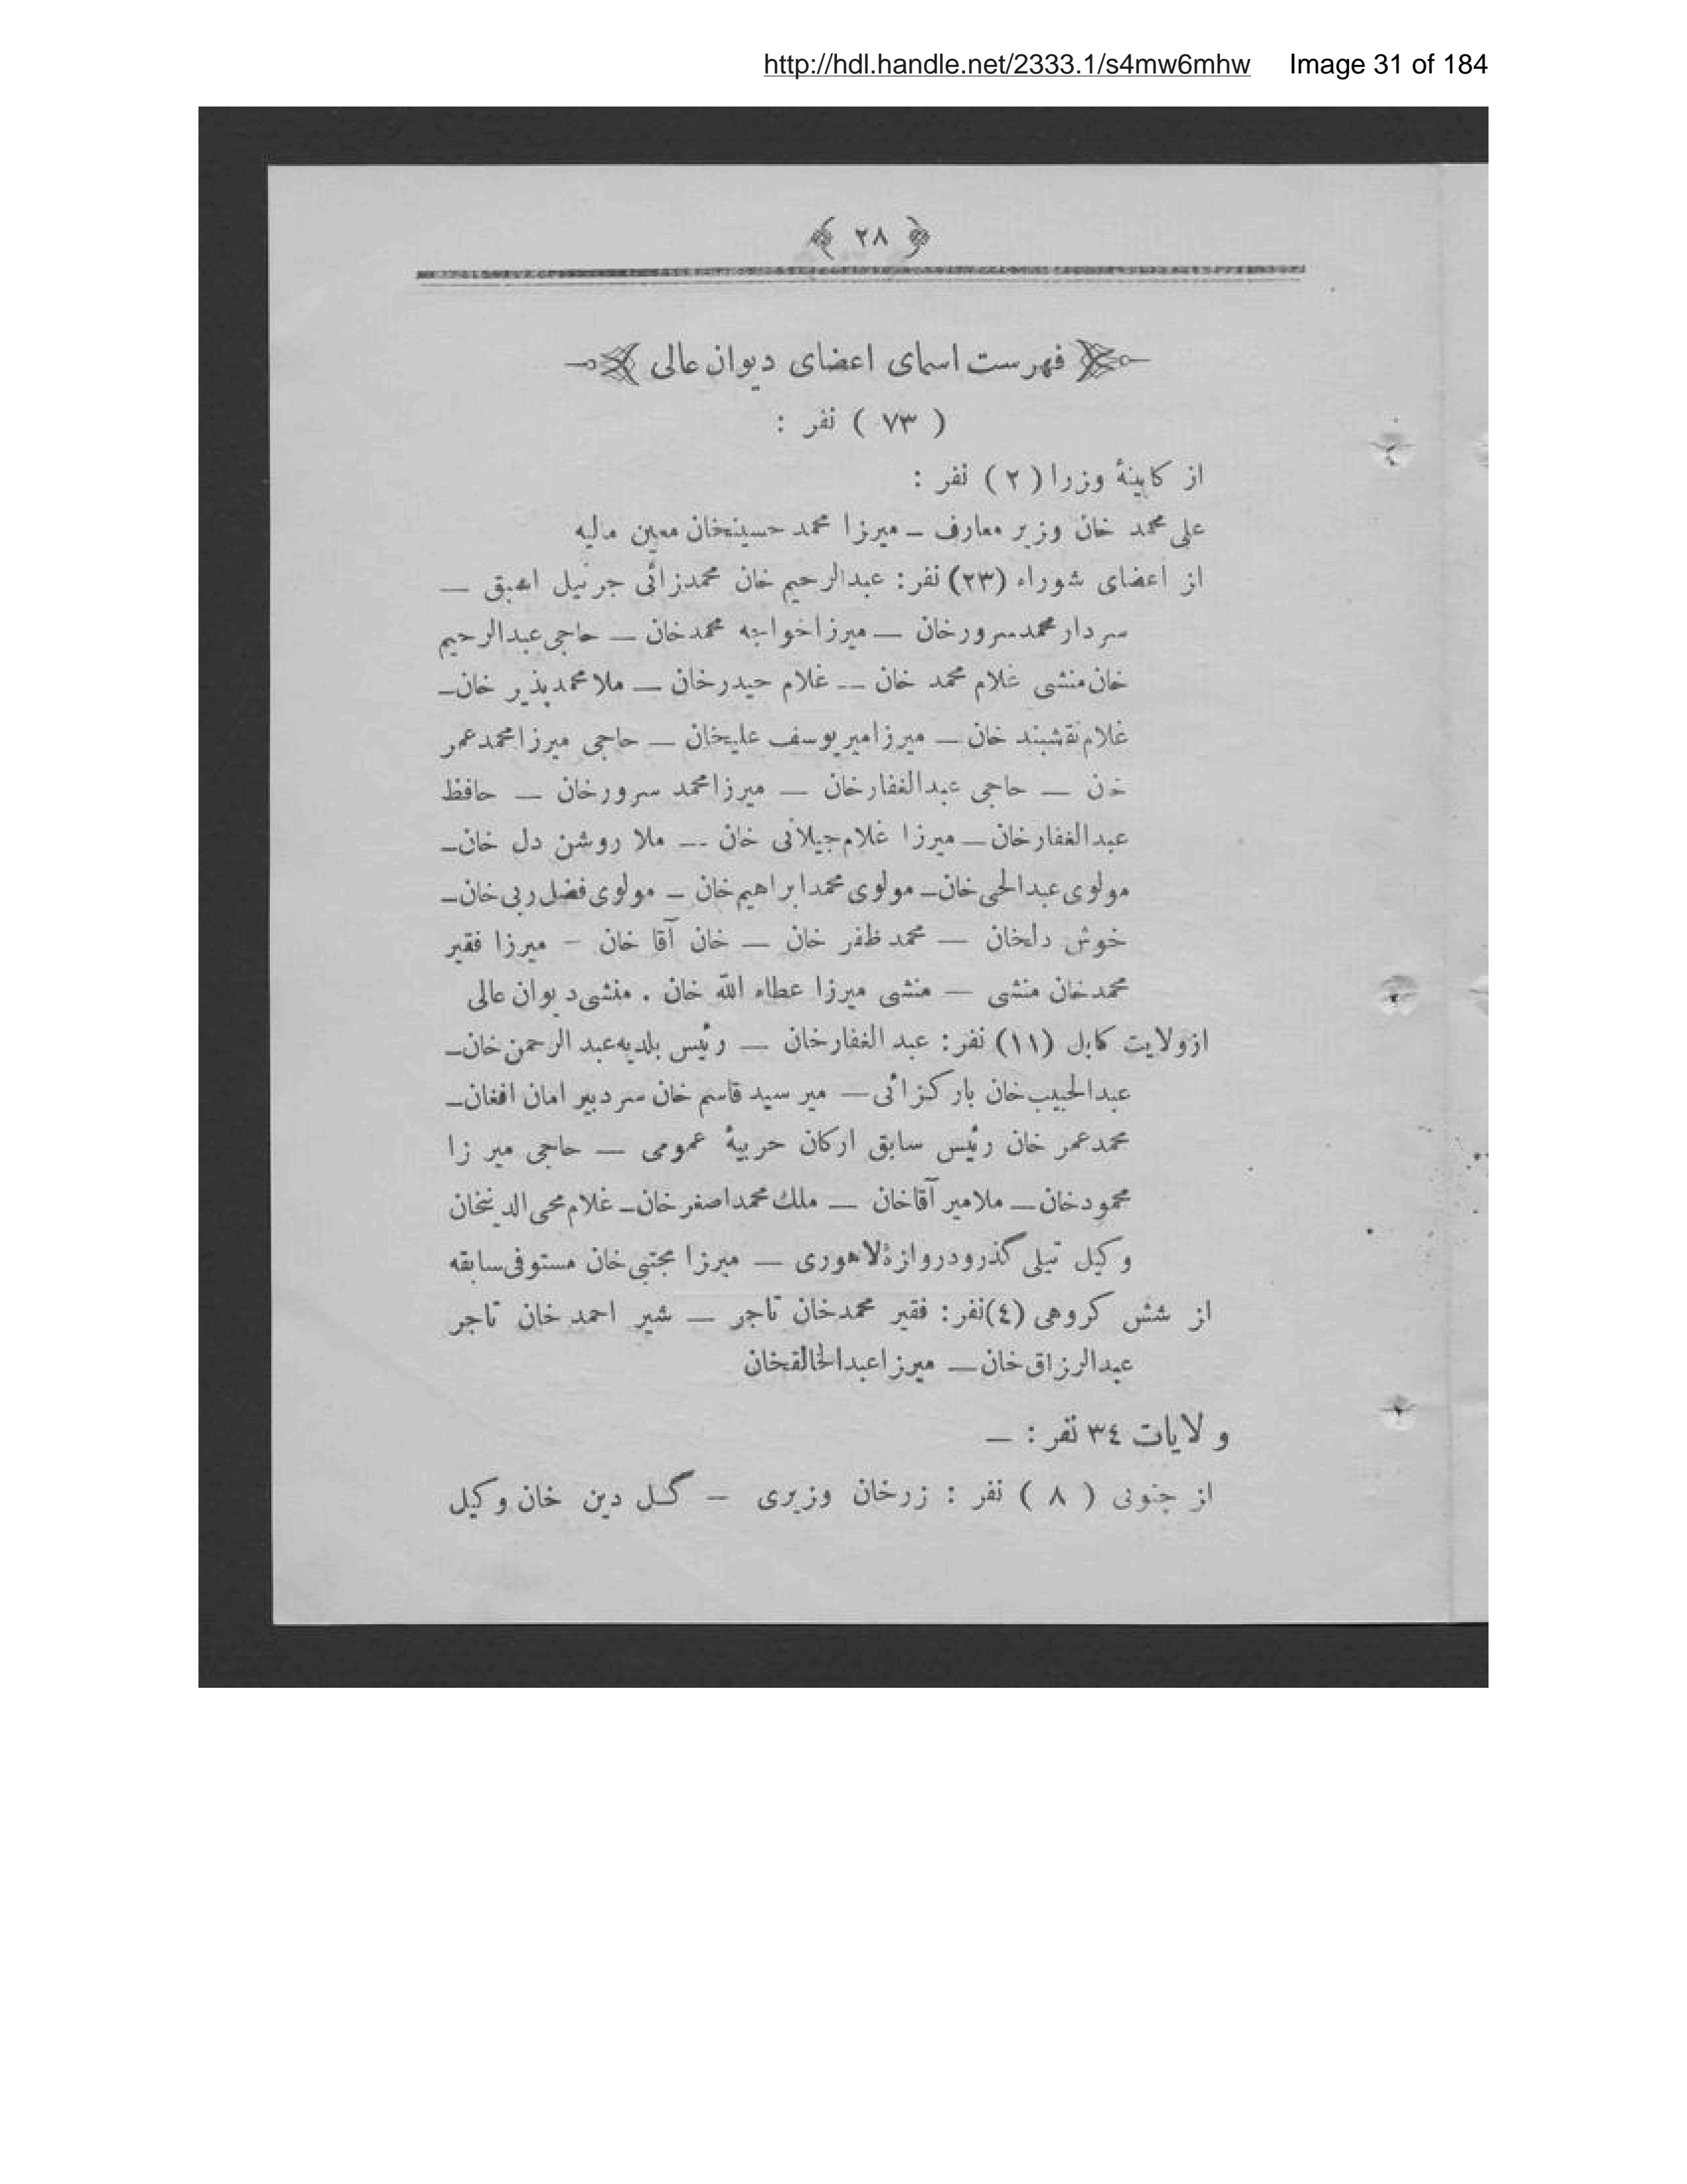 http://hdl.handle.net/2333.1/s4mw6mhw Image 31 of 184
﴿ ٢٨ ﴾
فهرست اسمای اعضای دیوان عالی
( ٧٣ ) نفر :
از کابینهٔ وزرا ( ٢ ) نفر :
علی محمد خان وزیر معارف ــ میرزا محمد حسینخان معین مالیه
از اعضای شوراء (٢٣) نفر: عبدالرحیم خان محمدزائی جرنیل ــ
سردار محمد سرور خان ــ میرزا خواجه محمد خان ــ حاجی عبدالرحیم
خان منشی غلام محمد خان ــ غلام حیدر خان ــ ملا محمد پذیر خان ــ
غلام نقشبند خان ــ میرزا میر یوسف علیخان ــ حاجی میرزا محمد عمر
خان ــ حاجی عبدالغفار خان ــ میرزا محمد سرور خان ــ حافظ
عبدالغفار خان ــ میرزا غلام جیلانی خان ــ ملا روشن دل خان ــ
مولوی عبدالحی خان ــ مولوی محمد ابراهیم خان ــ مولوی فضل ربی خان ــ
خوش دلخان ــ محمد ظفر خان ــ خان آقا خان ــ میرزا فقیر
محمد خان منشی ــ منشی میرزا عطاء الله خان . منشی دیوان عالی
از ولایت کابل (١١) نفر: عبد الغفار خان ــ رئیس بلدیه عبد الرحمن خان ــ
عبدالحبیب خان بارکزائی ــ میر سید قاسم خان سر دبیر امان افغان ــ
محمد عمر خان رئیس سابق ارکان حربیهٔ عمومی ــ حاجی میر زا
محمود خان ــ ملا میر آقا خان ــ ملك محمد اصغر خان ــ غلام محی الدینخان
وکیل تیلی گذر و دروازهٔ لاهوری ــ میرزا مجتبی خان مستوفی سابقه
از شش کروهی (٤) نفر: فقیر محمد خان تاجر ــ شیر احمد خان تاجر
عبدالرزاق خان ــ میرزا عبدالخالقخان
و لایات ٣٤ نفر : ــ
از جنوبی ( ٨ ) نفر : زرخان وزیری ــ گل دین خان وکیل